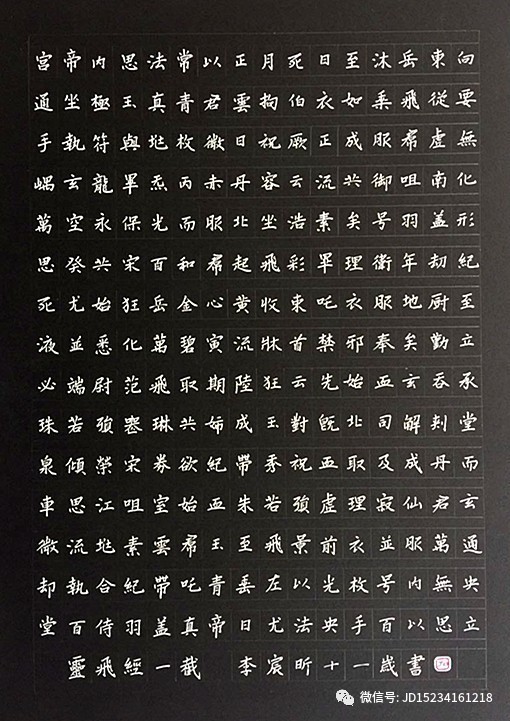 宮帝内思法常以正月死日至沐岳東向
通坐極玉真青君雲拘伯衣如乘飛從要
手執符與地枚微日祝厥正成服羣虚無
嵎玄龍畢炁丙未丹容云流共御咀南化
萬空永保光而服北坐浩素矣号羽盖形
思癸共宋百和羣起飛彩罩理衛年劫紀
死尤始狂岳金心黄收束吒衣服地厨至
液並悉化萬碧寅流牀首禁邪奉矣勤立
必端尉范飛取期陸狂云先始血玄吞承
珠若須褰琳共婦成玉對既北司解堂
泉傾榮宋券欲紀帶秀祝五取及成丹而
車思江咀室始血朱若須虚理寂仙君玄
微流地素雲羣玉至飛景前衣並服萬通
却執合紀帶吒青垂左以光枚号内無央
堂百侍羽盖真帝日尤法央手百以思立
靈飛經一截 李宸昕十一歲書
微信号: JD15234161218